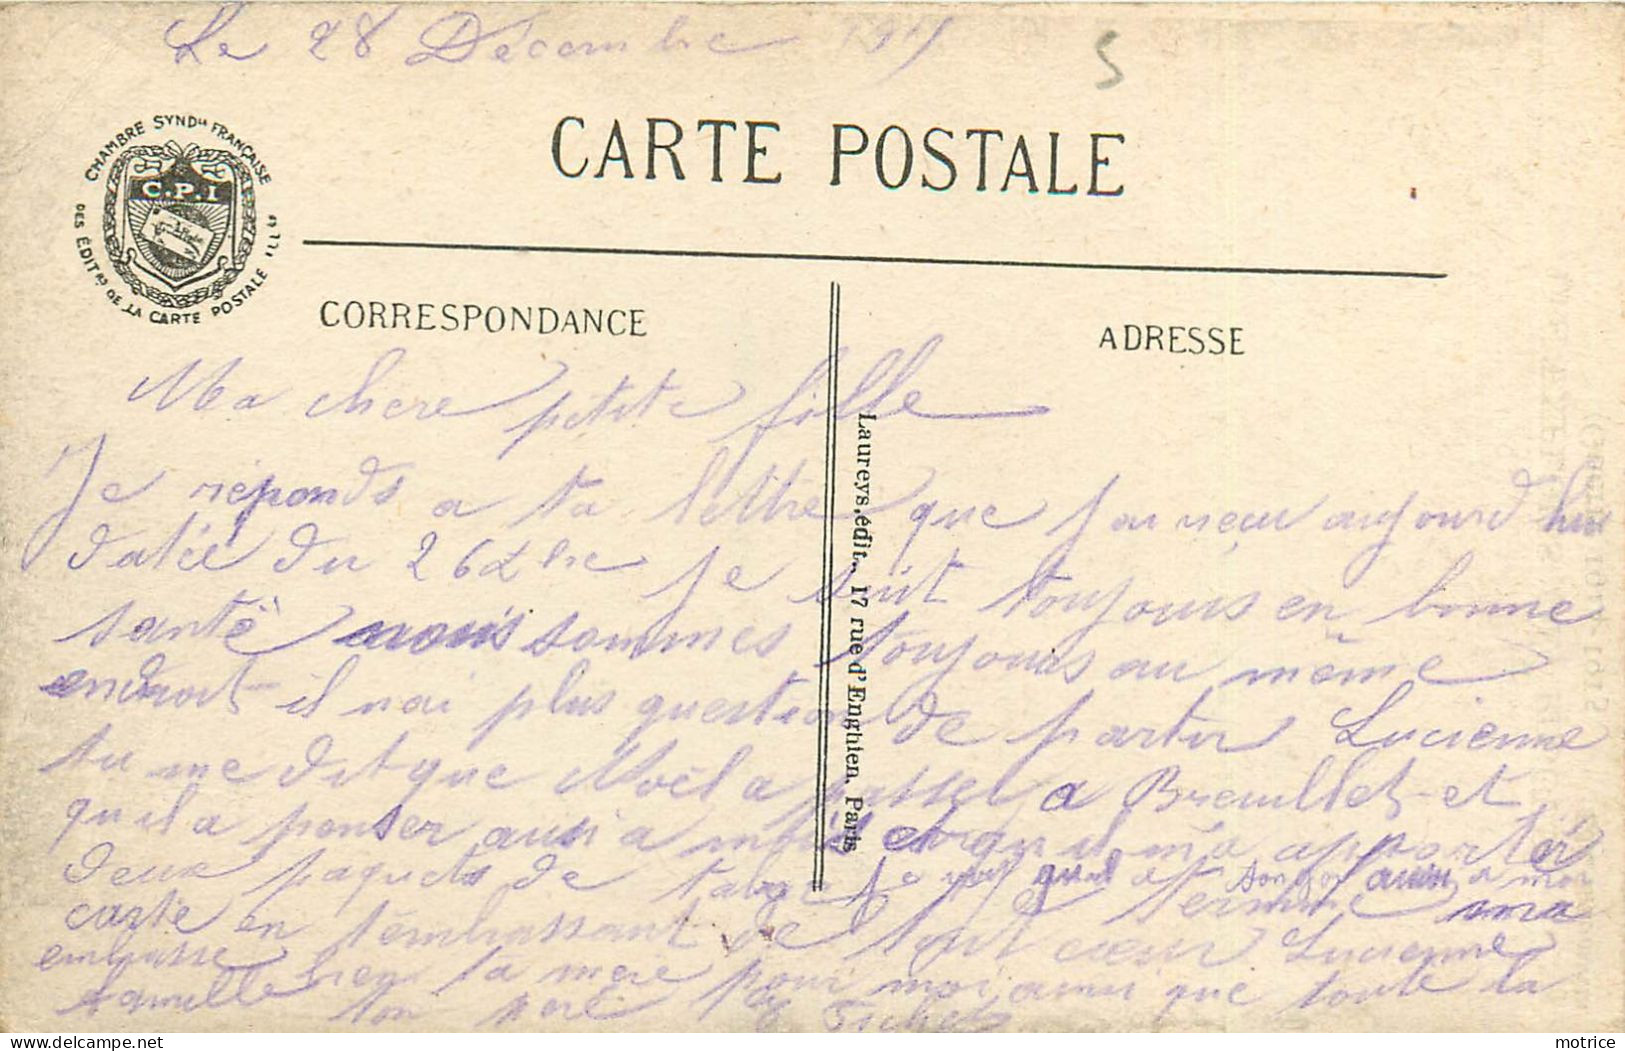 Le 28 Décembre 191
S
CHAMBRE SYND^le FRANÇAISE
C.P.I
DES ÉDIT^RS DE LA CARTE POSTALE ILL^ée
CARTE POSTALE
CORRESPONDANCE
ADRESSE
Ma chere petite fille
Je réponds a ta lettre que j'ai reçu aujourd'hui
datée du 26 Xbre je suit toujours en bonne
santé nous sommes toujours au même
endroit il n'ai plus question de partir Lucienne
tu me dit que Noël a passer a Breuillet et
qu'il a penser aussi a moi et qu'il m'a apporter
deux paquets de tabac je termine ma
carte en t'embrassant de tout cœur Lucienne
embrasse bien ta mere pour moi ainsi que toute la
famille ton pere
Laureys, édit., 17 rue d'Enghien, Paris
motrice